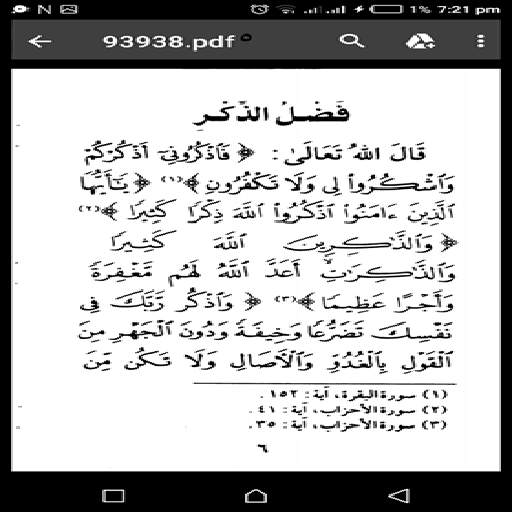 1% 7:21 pm
93938.pdf
فَضْلُ الذِّكْرِ
قَالَ اللهُ تَعَالَىٰ: ﴿ فَٱذْكُرُونِىٓ أَذْكُرْكُمْ
وَٱشْكُرُوا۟ لِى وَلَا تَكْفُرُونِ ﴾(١) ﴿ يَٰٓأَيُّهَا
ٱلَّذِينَ ءَامَنُوا۟ ٱذْكُرُوا۟ ٱللَّهَ ذِكْرًا كَثِيرًا ﴾(٢)
﴿ وَٱلذَّٰكِرِينَ ٱللَّهَ كَثِيرًا
وَٱلذَّٰكِرَٰتِ أَعَدَّ ٱللَّهُ لَهُم مَّغْفِرَةً
وَأَجْرًا عَظِيمًا ﴾(٣) ﴿ وَٱذْكُر رَّبَّكَ فِى
نَفْسِكَ تَضَرُّعًا وَخِيفَةً وَدُونَ ٱلْجَهْرِ مِنَ
ٱلْقَوْلِ بِٱلْغُدُوِّ وَٱلْءَاصَالِ وَلَا تَكُن مِّنَ
(١) سورة البقرة، آية: ١٥٢.
(٢) سورة الأحزاب، آية: ٤١.
(٣) سورة الأحزاب، آية: ٣٥.
٦